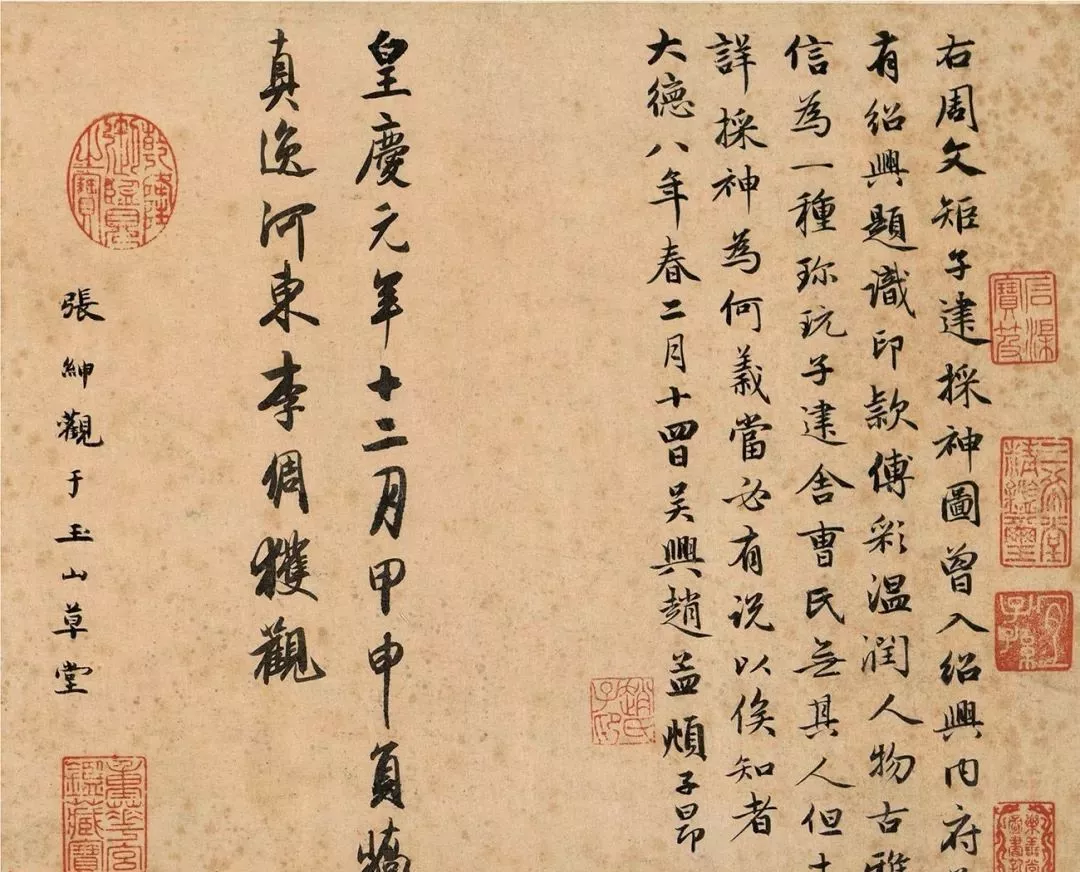 右周文矩子建採神圖曾入紹興内府
有紹興題識印款傅彩温潤人物古雅
信為一種珎玩子建舍曹氏無其人但
詳採神為何義當必有説以俟知者
大德八年春二月十四日吴興趙孟頫子昂
趙氏子昂
皇慶元年十二月甲申員嶠
真逸河東李倜獲觀
張紳觀于玉山草堂
乾隆御覽之寶